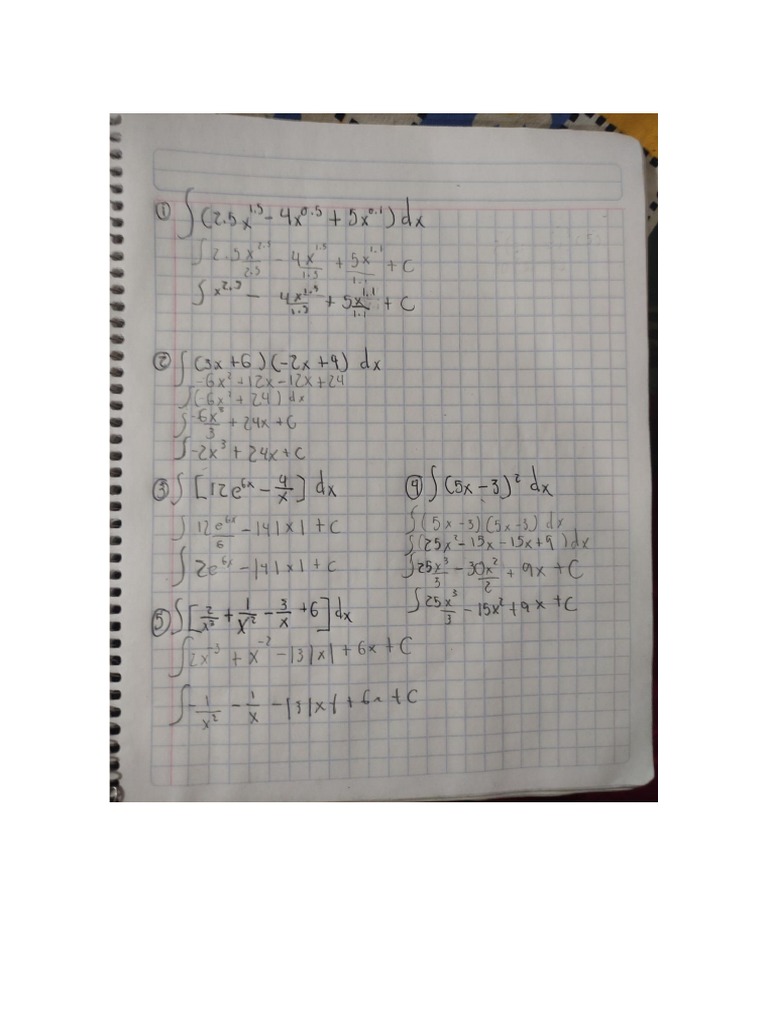 ① ∫ (2.5x^1.5 - 4x^0.5 + 5x^0.1) dx
∫ 2.5x^2.5/2.5 - 4x^1.5/1.5 + 5x^1.1/1.1 + C
∫ x^2.5 - 4x^1.5/1.5 + 5x^1.1/1.1 + C
② ∫ (3x+6)(-2x+4) dx
-6x² + 12x - 12x + 24
∫(-6x² + 24) dx
∫ -6x³/3 + 24x + C
∫ -2x³ + 24x + C
③ ∫ [12e^6x - 4/x] dx
∫ 12e^6x/6 - |4|x| + C
∫ 2e^6x - |4|x| + C
④ ∫ (5x-3)² dx
∫ (5x-3)(5x-3) dx
∫ (25x² - 15x - 15x + 9) dx
∫ 25x³/3 - 30x²/2 + 9x + C
∫ 25x³/3 - 15x² + 9x + C
⑤ ∫ [2/x³ + 1/x² - 3/x + 6] dx
∫ 2x^-3 + x^-2 - |3|x| + 6x + C
∫ -1/x² - 1/x - |3|x| + 6x + C